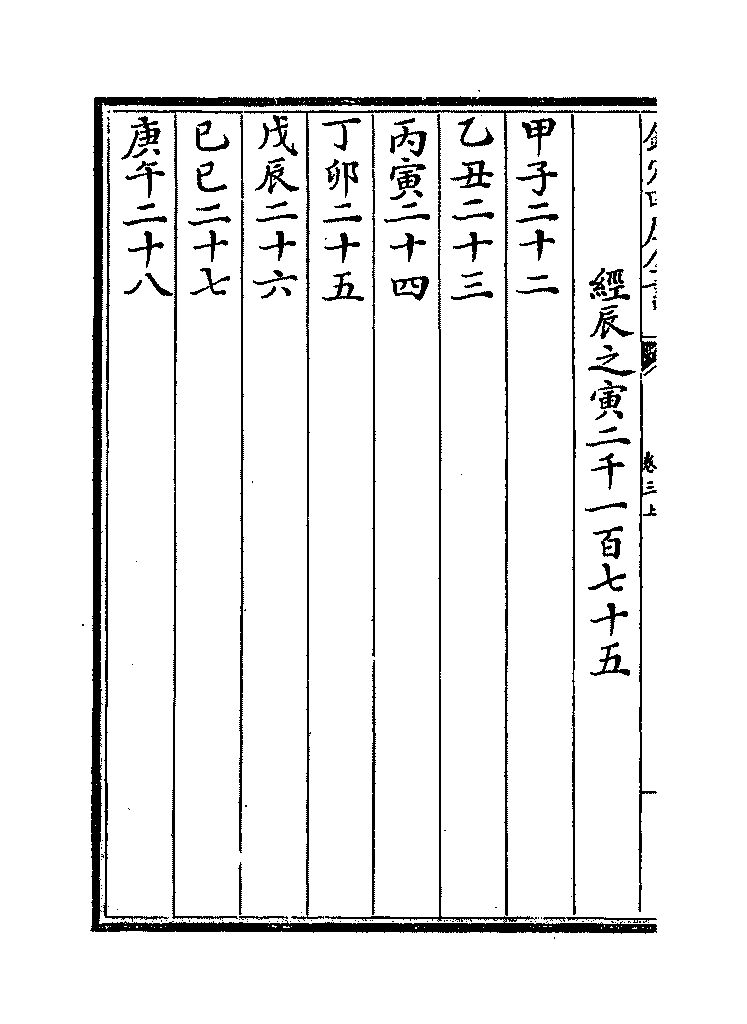 欽定四庫全書 卷三上
經辰之寅二千一百七十五
甲子二十二
乙丑二十三
丙寅二十四
丁卯二十五
戊辰二十六
己巳二十七
庚午二十八